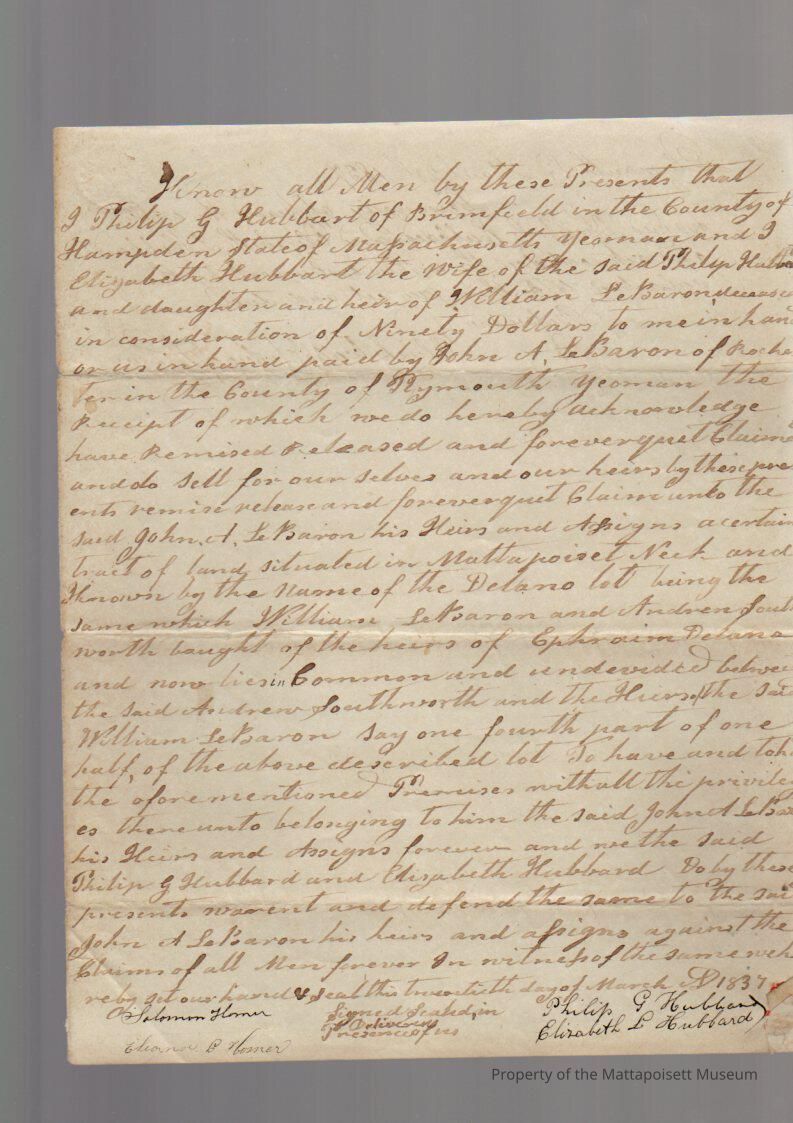 Know all Men by these Presents that
I Philip G Hubbart of Brimfield in the County of
Hampden State of Massachusetts Yeoman and I
Elizabeth Hubbart the Wife of the said Philip Hubb
and daughter and heir of William LeBaron deceas
in consideration of Ninety Dollars to me in han
or us in hand paid by John A. LeBaron of Roche
ter in the County of Plymouth Yeoman the
Receipt of which we do hereby acknowledge
have Remised Released and forever quet Claim
and do sell for our selves and our heirs by these pre
ents remise release and forever quet Claim unto the
said John. A. LeBaron his Heirs and Assigns a certain
tract of land situated in Mattapoiset Neck and
Known by the Name of the Delano lot being the
same which William LeBaron and Andrew Sout
worth baught of the heirs of Ephraim Delano
and now lies in Common and undevided betwe
the said Andrew Southworth and the Heirs of the said
William LeBaron say one fourth part of one
half, of the above described lot To have and toh
the aforementioned Premises with all the privileg
es there unto belonging to him the said John A LeBa
his Heirs and Assigns forever and we the said
Philip G Hubbard and Elizabeth Hubbard Do by these
presents warent and defend the same to the sai
John A LeBaron his heirs and assigns against the
Claims of all Men forever In witness of the same we h
reby set our hand & Seal this twentieth day of March AD 1837
Solomon Homer Signed Sealed, in Philip G Hubbard
& Delivered Elizabeth L Hubbard
Presence of us
B Homer
Property of the Mattapoisett Museum